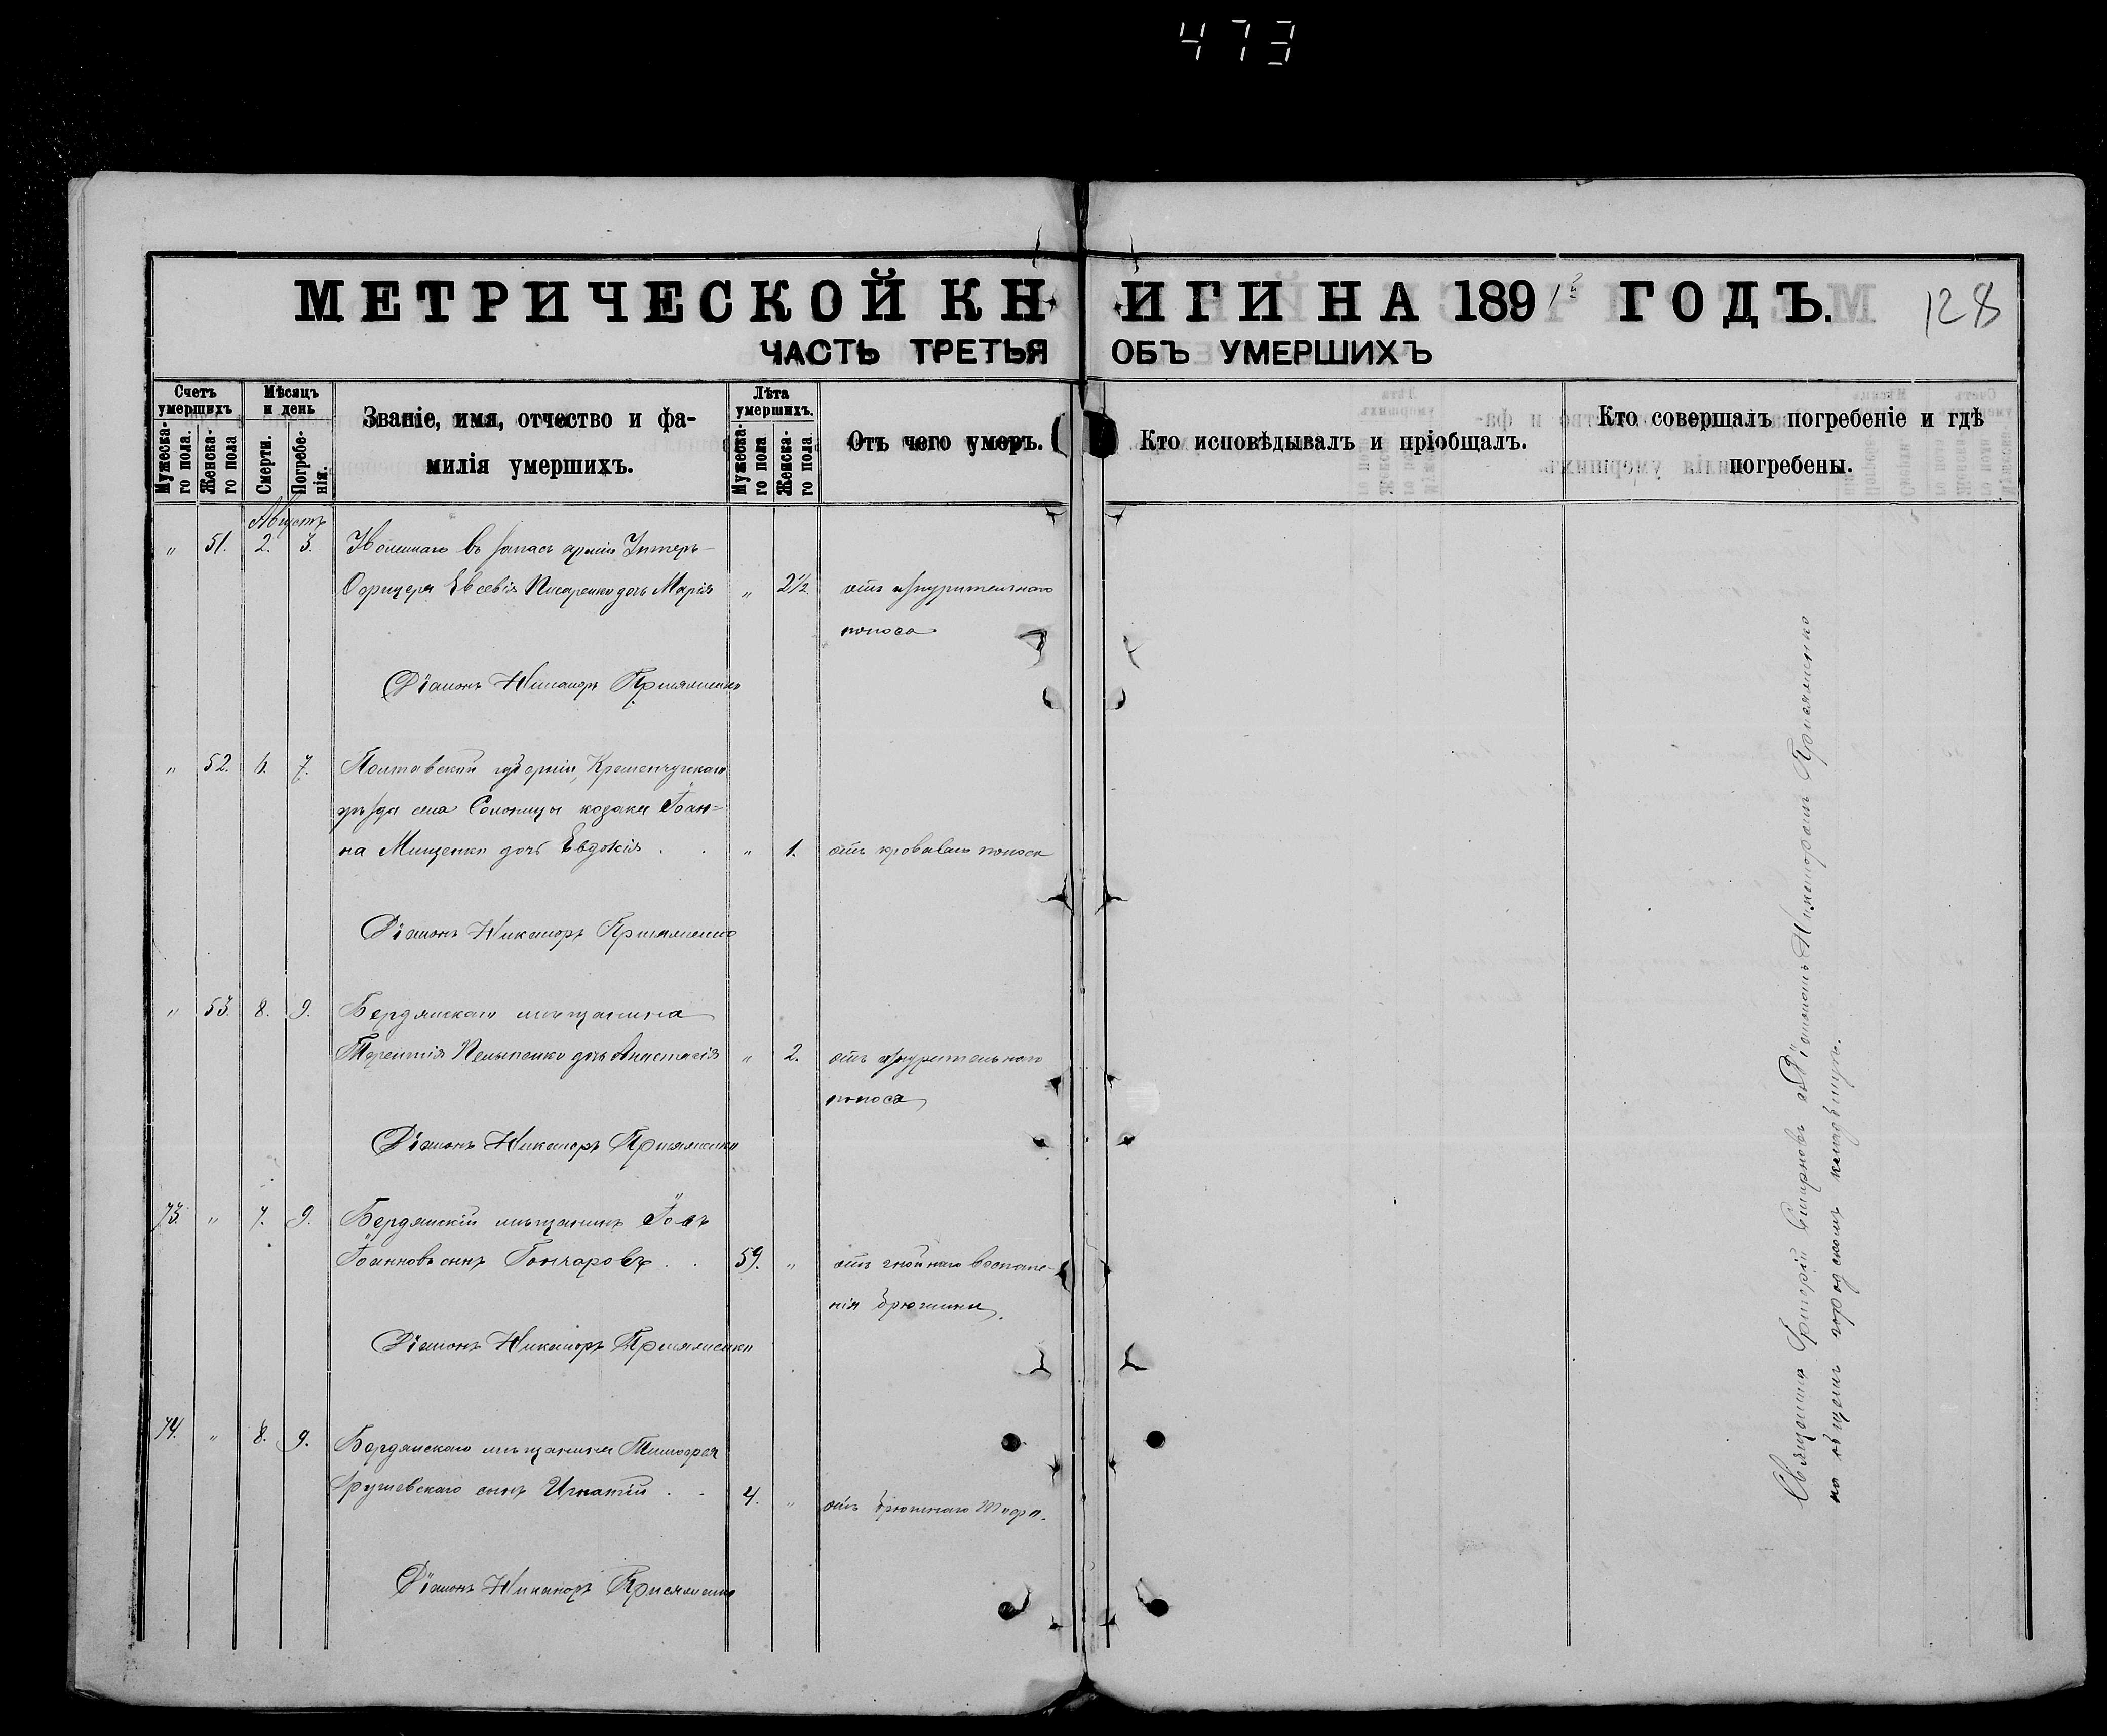 473
МЕТРИЧЕСКОЙ КНИГИ НА 1891 ГОДЪ.
128
ЧАСТЬ ТРЕТЬЯ ОБЪ УМЕРШИХЪ
Счетъ умершихъ
Мужеска-го пола.
Женска-го пола
Мѣсяцъ и день
Смерти.
Погребе-нія.
Званіе, имя, отчество и фа-
милія умершихъ.
Лѣта умершихъ.
Мужеска-го пола
Женска-го пола.
Отъ чего умеръ.
Кто исповѣдывалъ и пріобщалъ.
Кто совершалъ погребеніе и гдѣ
погребены.
Августъ
" 51. 2. 3. Уволеннаго въ запасъ арміи Унтеръ-
Офицера Евсевія Писаренко дочь Марія " 2½. отъ изнурительнаго
поноса
Діаконъ Никаноръ Присяженко
" 52. 6. 7. Полтавской губерніи, Кременчугскаго
уѣзда села Солоницы козака Іоан=
на Мищенко дочь Евдокія . . " 1. отъ кроваваго поноса
Діаконъ Никаноръ Присяженко
" 53. 8. 9. Бердянскаго мѣщанина
Терентія дочь Анастасія " 2. отъ изнурительнаго
поноса
Діаконъ Никаноръ Присяженко
73. " 7. 9. Бердянскій мѣщанинъ Іовъ
Іоанновъ сынъ Гончаровъ . . 59. " отъ гнойнаго воспале-
нія брюшины.
Діаконъ Никаноръ Присяженко
74. " 8. 9. Бердянскаго мѣщанина Тимофея
сынъ Игнатій . . 4. " отъ брюшнаго тифа.
Діаконъ Никаноръ Присяженко
Священникъ Григорій Смирновъ съ Діакономъ Никаноромъ Присяженко
на общемъ городскомъ кладбищѣ.